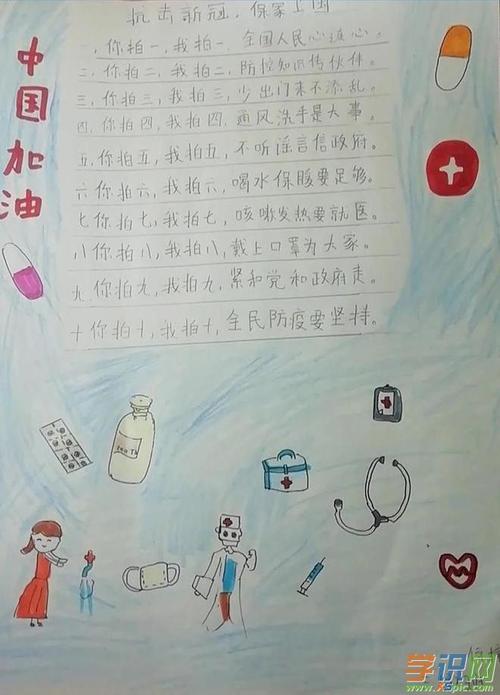 抗击新冠，保家卫国
中国加油
一、你拍一，我拍一，全国人民心连心。
二、你拍二，我拍二，防控知识传伙伴。
三、你拍三，我拍三，少出门来不添乱。
四、你拍四，我拍四，通风洗手是大事。
五、你拍五，我拍五，不听谣言信政府。
六、你拍六，我拍六，喝水保暖要足够。
七、你拍七，我拍七，咳嗽发热要就医。
八、你拍八，我拍八，戴上口罩为大家。
九、你拍九，我拍九，紧和党和政府走。
十、你拍十，我拍十，全民防疫要坚持。
学识网
www.xspic.com